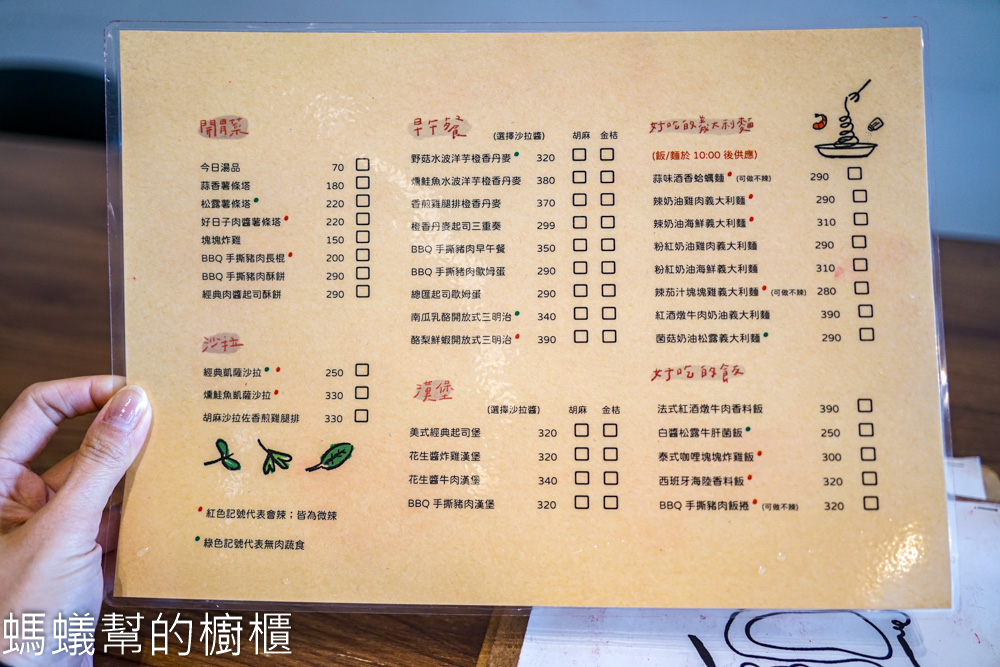 開胃菜
今日湯品 70
蒜香薯條塔 180
松露薯條塔 220
好日子肉醬薯條塔 220
塊塊炸雞 150
BBQ 手撕豬肉長棍 200
BBQ 手撕豬肉酥餅 290
經典肉醬起司酥餅 290
沙拉
經典凱薩沙拉 250
燻鮭魚凱薩沙拉 330
胡麻沙拉佐香煎雞腿排 330
紅色記號代表會辣；皆為微辣
綠色記號代表無肉蔬食
早午餐 (選擇沙拉醬) 胡麻 金桔
野菇水波洋芋橙香丹麥 320
燻鮭魚水波洋芋橙香丹麥 380
香煎雞腿排橙香丹麥 370
橙香丹麥起司三重奏 299
BBQ 手撕豬肉早午餐 350
BBQ 手撕豬肉歐姆蛋 290
總匯起司歐姆蛋 290
南瓜乳酪開放式三明治 340
酪梨鮮蝦開放式三明治 390
漢堡 (選擇沙拉醬) 胡麻 金桔
美式經典起司堡 320
花生醬炸雞漢堡 320
花生醬牛肉漢堡 340
BBQ 手撕豬肉漢堡 320
好吃的義大利麵
(飯/麵於 10:00 後供應)
蒜味酒香蛤蠣麵 (可做不辣) 290
辣奶油雞肉義大利麵 290
辣奶油海鮮義大利麵 310
粉紅奶油雞肉義大利麵 290
粉紅奶油海鮮義大利麵 310
辣茄汁塊塊雞義大利麵 (可做不辣) 280
紅酒燉牛肉奶油義大利麵 390
菌菇奶油松露義大利麵 290
好吃的飯
法式紅酒燉牛肉香料飯 390
白醬松露牛肝菌飯 250
泰式咖哩塊塊炸雞飯 300
西班牙海陸香料飯 320
BBQ 手撕豬肉飯捲 (可做不辣) 320
螞蟻幫的櫥櫃